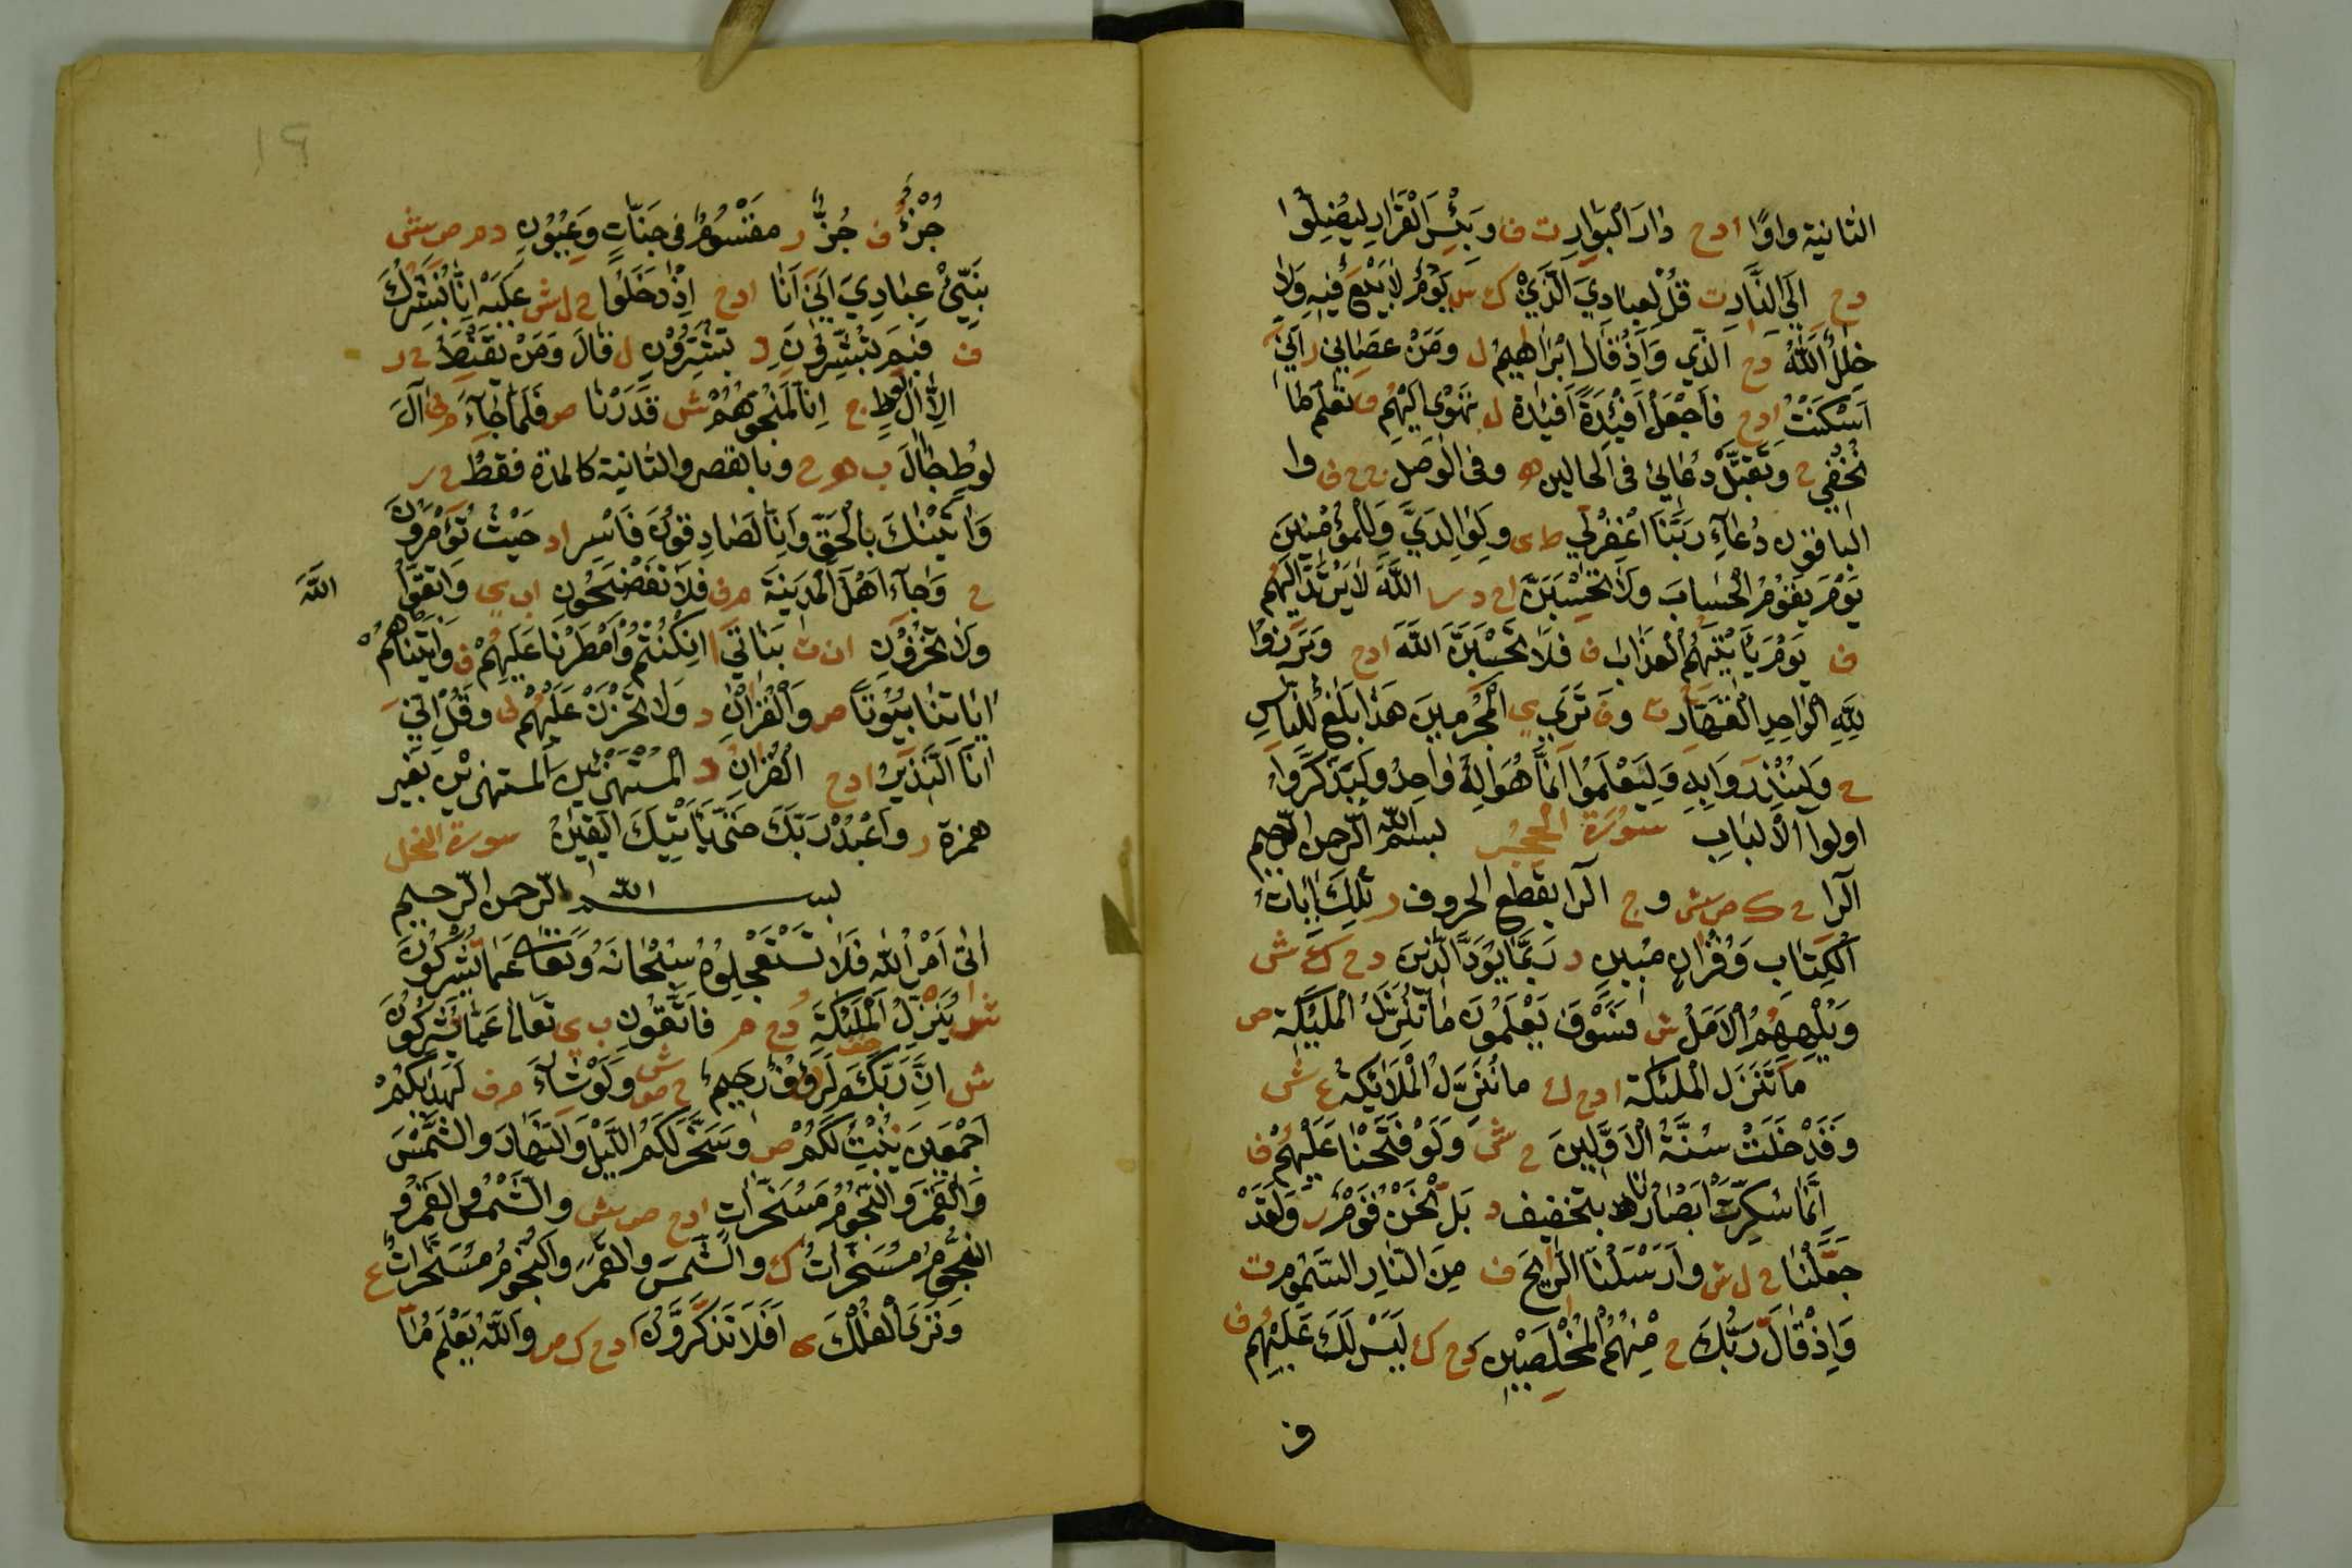 الثانية واوًا ادح دَارَ الْبَوَارِ ت ف وَبِئْسَ الْقَرَارِ لِيُضِلُّوا
دح اِلَى النَّارِ ت قُلْ لِعِبَادِيَ الَّذِينَ ك ش يَوْمٌ لَا بَيْعٌ فِيهِ وَلَا
خِلَالٌ اَللَّهُ دح الَّذِي وَاِذْ قَالَ اِبْرَاهِيمُ ل وَمَنْ عَصَانِي ر اِنِّي
اَسْكَنْتُ ادح فَاجْعَلْ اَفْئِدَةً اَفْئِيدَة ل تَهْوِي اِلَيْهِمْ ف تَعْلَمُ مَا
نُخْفِي ح وَتَقَبَّلْ دُعَائِي فى الحالين ه وفى الوصل ج ح ف وا
الباقون دُعَاءِ رَبَّنَا اغْفِرْلِي ط ى وَلِوَالِدَيَّ وَلِلْمُؤْمِنِينَ
يَوْمَ يَقُومُ الْحِسَابُ وَلَا تَحْسَبَنَّ ا ح د ر اللَّهَ لَا يَرْتَدُّ اِلَيْهِمْ
ف يَوْمَ يَاْتِيهِمُ الْعَذَابُ ف فَلَا تَحْسَبَنَّ اللَّهَ ادح وَبَرَزُوا
لِلَّهِ الْوَاحِدِ الْقَهَّارِ ت وف تَرَى ى الْمُجْرِمِينَ هَذَا بَلَاغٌ لِلنَّاسِ
ح وَلِيُنْذَرُوا بِهِ وَلِيَعْلَمُوا اَنَّمَا هُوَ اِلَهٌ وَاحِدٌ وَلِيَذَّكَّرَ
اولوا الْاَلْبَابِ سورة الحجر بسم الله الرحمن الرحيم
الٓرا ح ك ص ش وج الرا بقطع الحروف ر تِلْكَ اٰيَاتُ
الْكِتَابِ وَقُرْاٰنٍ مُبِينٍ د رُبَّمَا يَوَدُّ الَّذِينَ دح ك ع ش
وَيُلْهِهِمُ الْاَمَلُ ش فَسَوْفَ يَعْلَمُونَ مَا تُنَزَّلُ الْمَلٰئِكَة ص
مَا تَنَزَّلُ الْمَلٰئِكَة ادح ك مَا نُنَزِّلُ الْمَلَائِكَةَ ع ش
وَقَدْ خَلَتْ سُنَّةُ الْاَوَّلِينَ ح ش وَلَوْ فَتَحْنَا عَلَيْهِمْ ف
اِنَّمَا سُكِرَتْ اَبْصَارُنَا بتخفيف د بَلْ نَحْنُ قَوْمٌ ر وَلَقَدْ
جَعَلْنَا ح ل ش وَاَرْسَلْنَا الرِّيحَ ف مِنَ النَّارِ السَّمُومِ ت
وَاِذْ قَالَ رَبُّكَ ح مِنْهُمُ الْمُخْلِصِينَ دح ك لَيْسَ لَكَ عَلَيْهِمْ ف
ف
١٩
جُزْءٌ ف جُزٌّ ر مَقْسُومٌ فِي جَنَّاتٍ وَعِيُونٍ دم ص ش
نَبِّئْ عِبَادِيَ اَنِّيَ اَنَا ادح اِذْ دَخَلُوا ح ل ش عَلَيْهِ اِنَّا نُبَشِّرُكَ
ف فَبِمَ تُبَشِّرُونَ د تُبَشِّرُونِ ل قَالَ وَمَنْ يَقْنِطُ ح ر
اِلَّا اٰلَ لُوطٍ ج اِنَّا لَمُنْجُوهُمْ ش قَدَرْنَا ص فَلَمَّا جَاءَ م ف اٰلَ
لُوطٍ جَالَ ب هو ح وبالقصر والثانية كالمدة فقط ح ر
وَاَتَيْنٰكَ بِالْحَقِّ وَاِنَّا لَصَادِقُونَ فَاسْرِ اد حَيْثُ تُؤْمَرُونَ
ح وَجَاءَ اَهْلُ الْمَدِينَةِ م ف فَلَا تَفْضَحُونِ اب ى وَاتَّقُوا اللَّهَ
وَلَا تُخْزُونِ ان ت بَنَاتِي ا اِنْ كُنْتُمْ وَاَمْطَرْنَا عَلَيْهِمْ ف وَاٰتَيْنَاهُمْ
اٰيَاتِنَا بِيُوتًا ص وَالْقُرْاٰنَ د وَلَا تَحْزَنْ عَلَيْهِمْ ف وَقُلْ اِنِّي
اَنَا النَّذِيرُ ادح الْقُرْاٰنَ د الْمُسْتَهْزِئِينَ المستهزين بغير
همزة ر وَاعْبُدْ رَبَّكَ حَتَّى يَاْتِيَكَ الْيَقِينُ سورة النحل
بسم الله الرحمن الرحيم
اَتٰى اَمْرُ اللّٰهِ فَلَا تَسْتَعْجِلُوهُ سُبْحَانَهُ وَتَعَالَى عَمَّا تُشْرِكُونَ
ش يُنْزِلُ الْمَلٰئِكَةَ دح م فَاتَّقُونِ ب ى تَعَالَى عَمَّا تُشْرِكُونَ
ش اِنَّ رَبَّكَمْ لَرَؤُفٌ رَحِيمٌ ح ص ش وَلَوْ شَاءَ م ف لَهَدٰيكُمْ
اَجْمَعِينَ نُنْبِتُ لَكُمْ ص وَسَخَّرَ لَكُمُ اللَّيْلَ وَالنَّهَارَ وَالشَّمْسَ
وَالْقَمَرَ وَالنُّجُومَ مُسَخَّرَاتٍ ادح ص ش وَالشَّمْسُ وَالْقَمَرُ وَ
النُّجُومُ مُسَخَّرَاتٌ ك وَالشَّمْسَ وَالْقَمَرَ وَالنُّجُومُ مُسَخَّرَاتٌ ع
وَتَرَى الْفُلْكَ ى اَفَلَا تَذَّكَّرُونَ ادح ك ص وَاللَّهُ يَعْلَمُ مَا